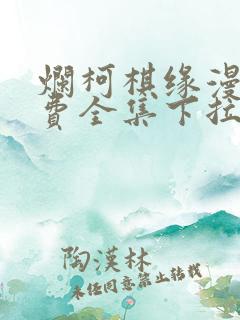 爛柯棋缘漫
费全集下拉
陶漢林
未经同意禁止转载